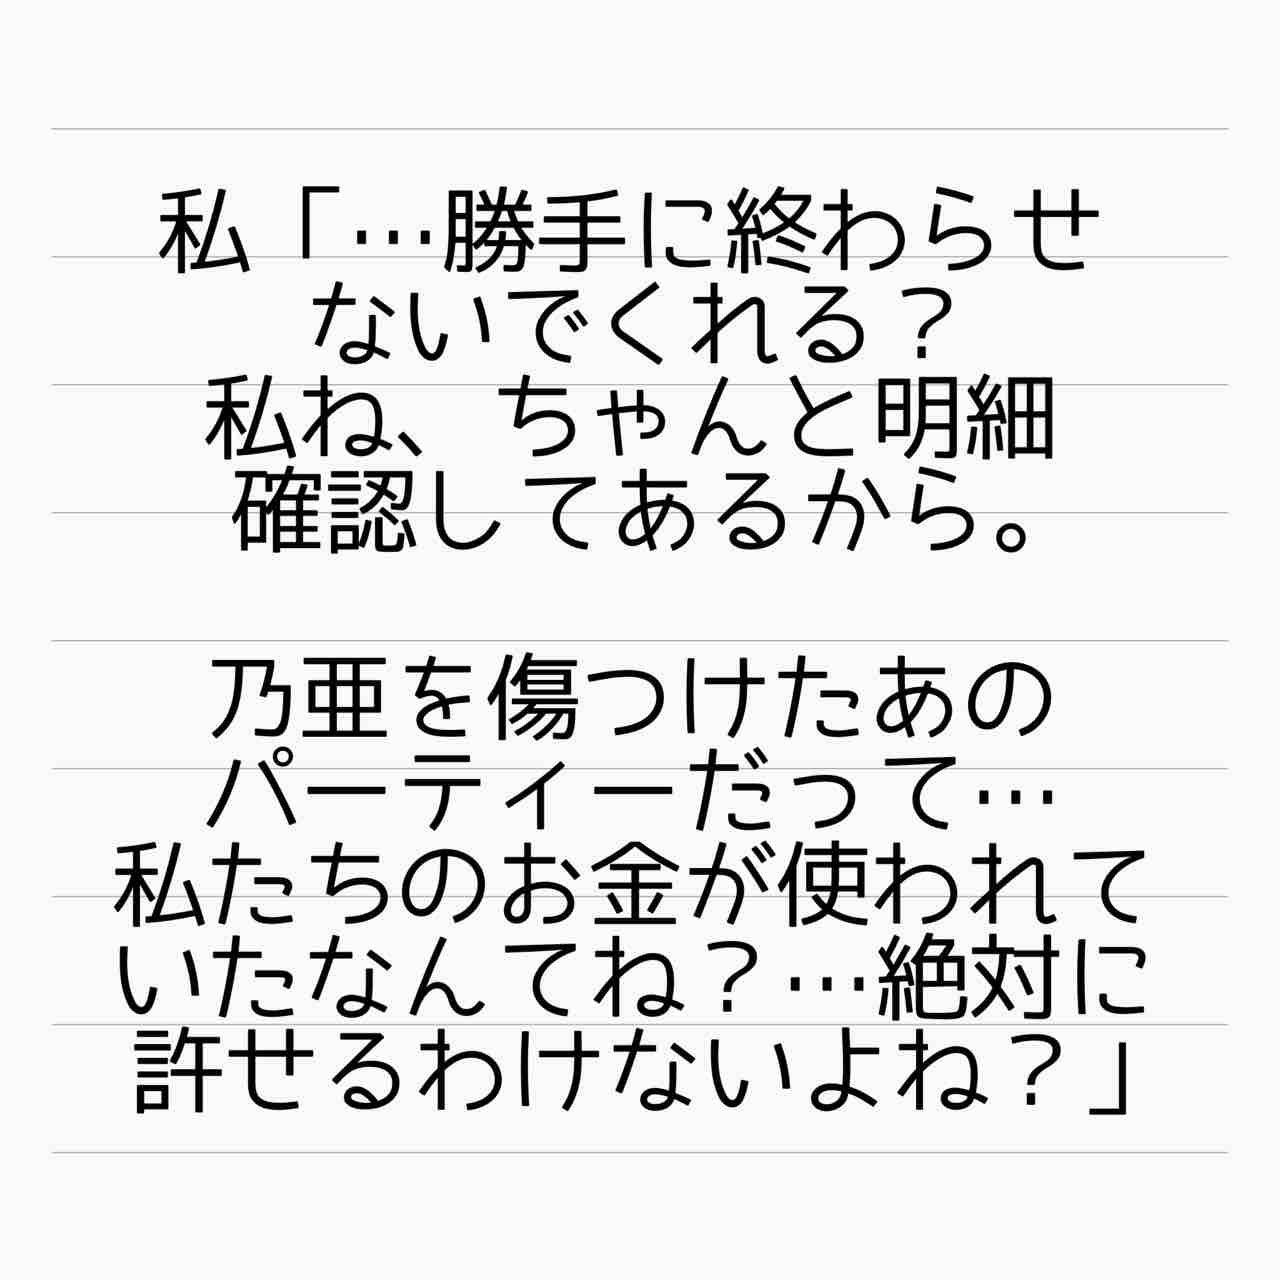 私「…勝手に終わらせ
ないでくれる？
私ね、ちゃんと明細
確認してあるから。
乃亜を傷つけたあの
パーティーだって…
私たちのお金が使われて
いたなんてね？…絶対に
許せるわけないよね？」